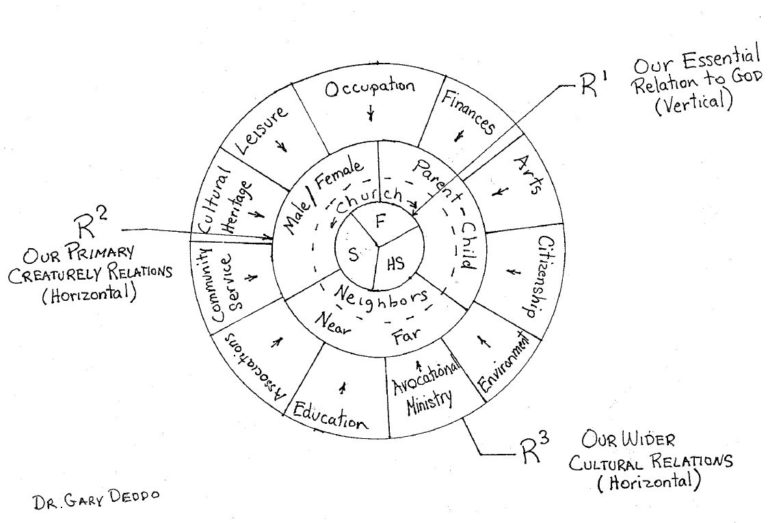 R1
Our Essential
Relation to God
(Vertical)
Occupation
Finances
Arts
Citizenship
Environment
Avocational
Ministry
Education
Associations
Community
Service
Cultural
Heritage
Leisure
Male/Female
Parent-Child
Church
Neighbors
Near
Far
F
S
HS
R2
Our Primary
Creaturely Relations
(Horizontal)
R3
Our Wider
Cultural Relations
(Horizontal)
Dr. Gary Deddo